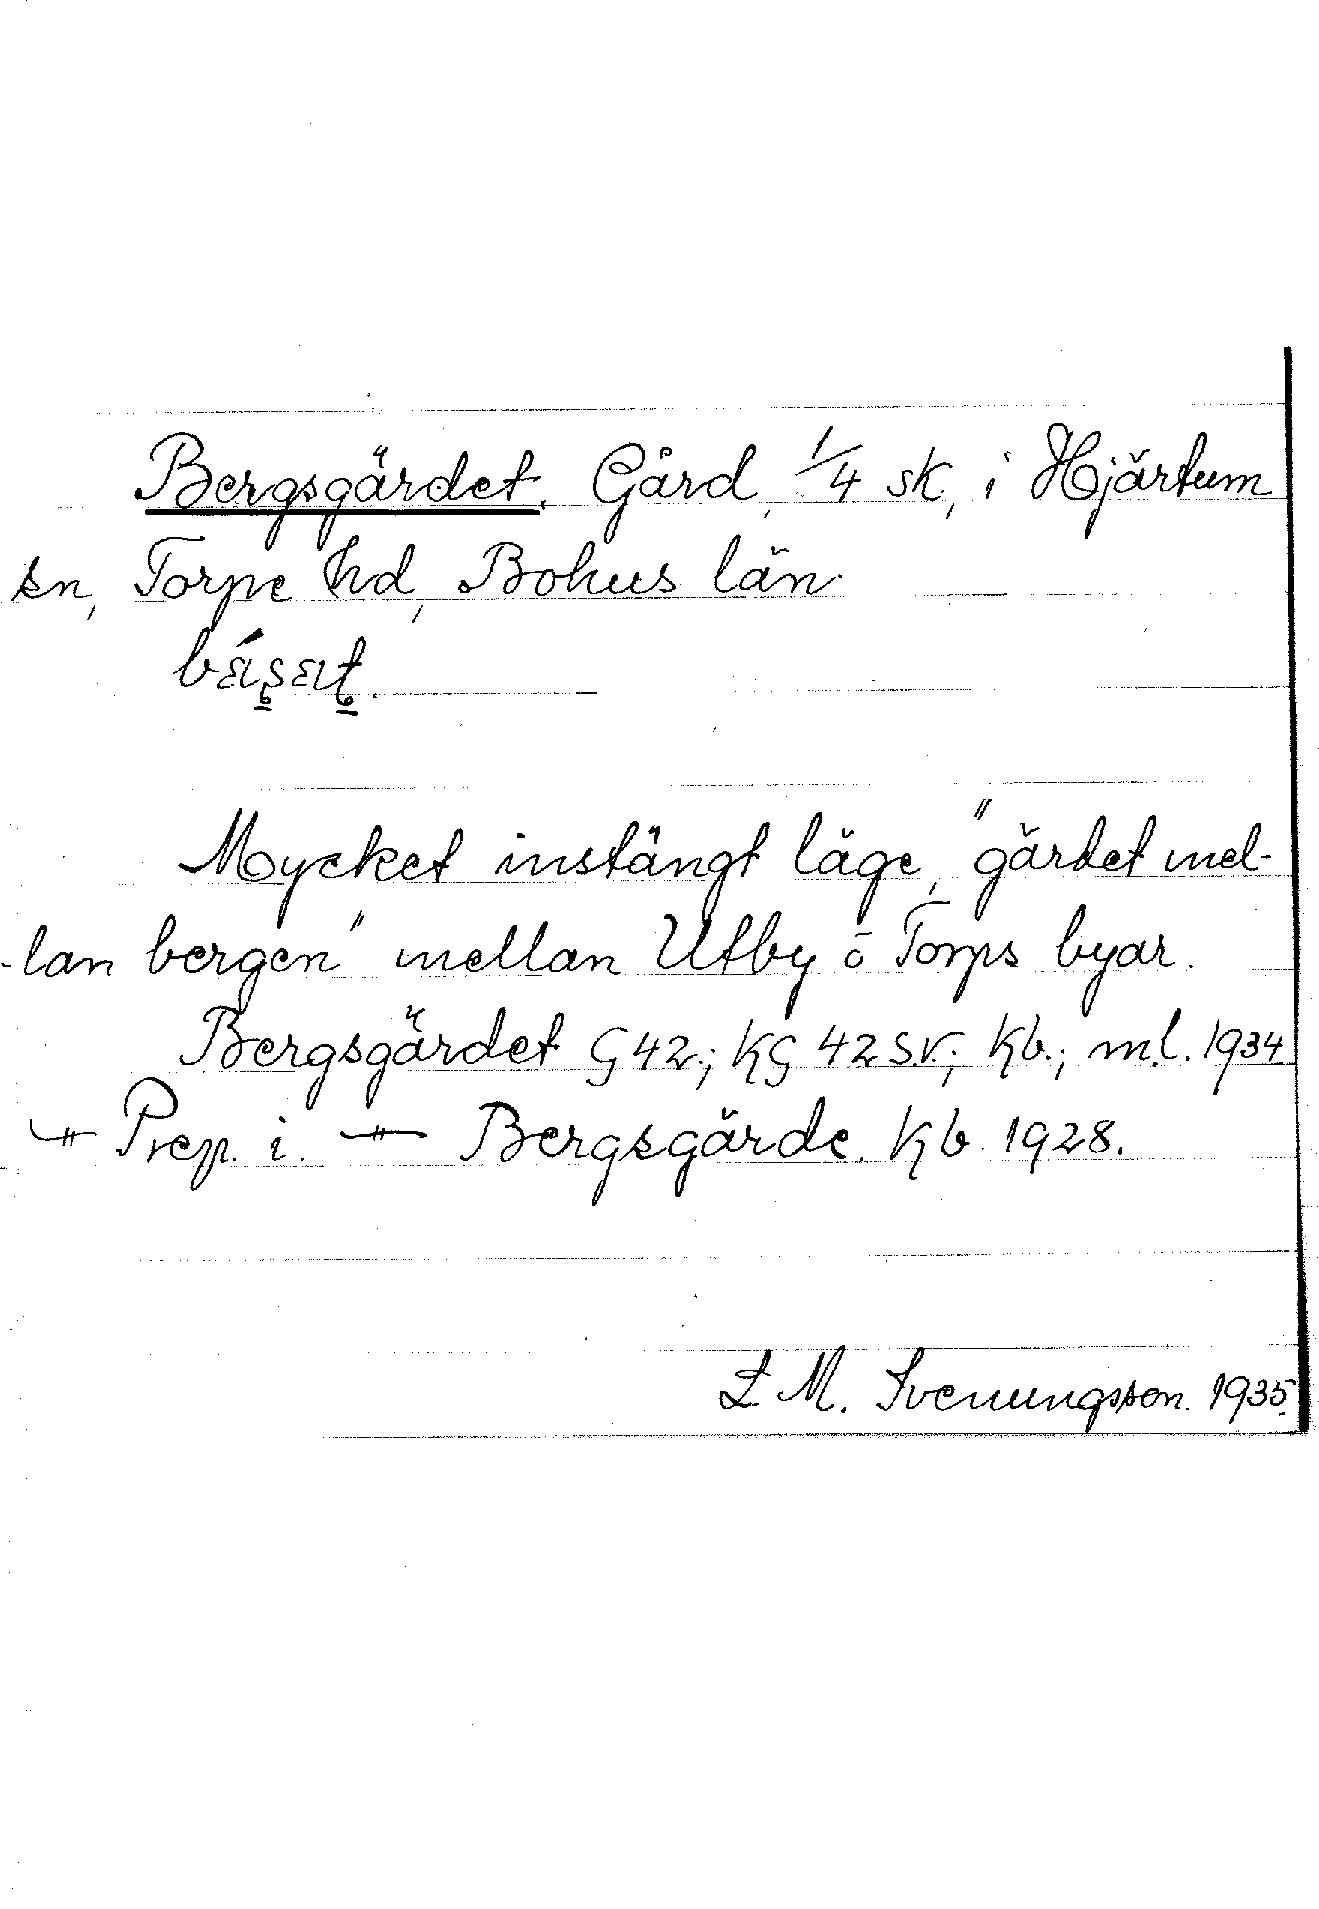 Bergsgärdet. Gård, 1/4 sk, i Hjärtum
sn, Torpe hd, Bohus län.
Mycket instängt läge, "gärdet mel-
lan bergen" mellan Utby o Torps byar.
Bergsgärdet G 42.; KG 42 S.V.; Kb.; m.l. 1934
-"- Prep. i. -"- Bergsgärde. Kb. 1928.
L M. Svenungsson. 1935.